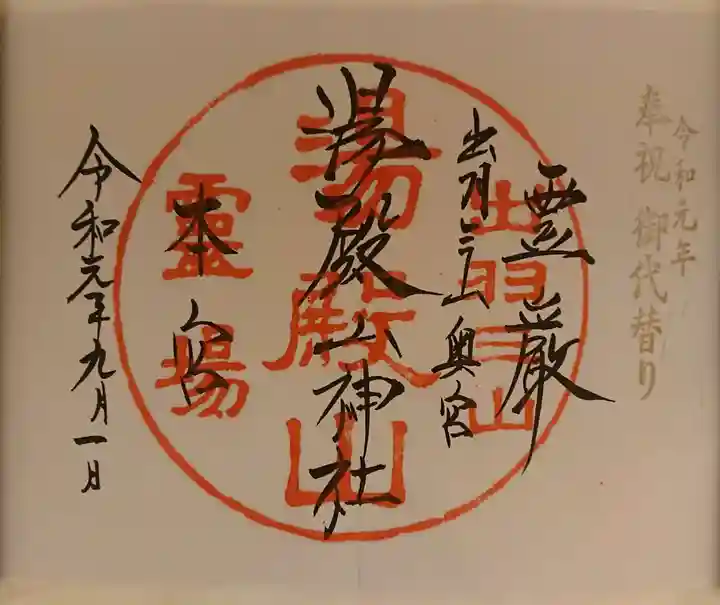 令和元年
奉祝 御代替り
霊厳
出羽三山 奥宮
湯殿山神社
本宮
令和元年九月一日
出羽三山
湯殿山
靈場